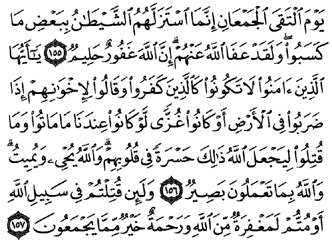 يَوْمَ ٱلْتَقَى ٱلْجَمْعَانِ إِنَّمَا ٱسْتَزَلَّهُمُ ٱلشَّيْطَٰنُ بِبَعْضِ مَا
كَسَبُوا۟ ۖ وَلَقَدْ عَفَا ٱللَّهُ عَنْهُمْ ۗ إِنَّ ٱللَّهَ غَفُورٌ حَلِيمٌ ١٥٥ يَٰٓأَيُّهَا
ٱلَّذِينَ ءَامَنُوا۟ لَا تَكُونُوا۟ كَٱلَّذِينَ كَفَرُوا۟ وَقَالُوا۟ لِإِخْوَٰنِهِمْ إِذَا
ضَرَبُوا۟ فِى ٱلْأَرْضِ أَوْ كَانُوا۟ غُزًّى لَّوْ كَانُوا۟ عِندَنَا مَا مَاتُوا۟ وَمَا
قُتِلُوا۟ لِيَجْعَلَ ٱللَّهُ ذَٰلِكَ حَسْرَةً فِى قُلُوبِهِمْ ۗ وَٱللَّهُ يُحْىِۦ وَيُمِيتُ ۗ
وَٱللَّهُ بِمَا تَعْمَلُونَ بَصِيرٌ ١٥٦ وَلَئِن قُتِلْتُمْ فِى سَبِيلِ ٱللَّهِ
أَوْ مُتُّمْ لَمَغْفِرَةٌ مِّنَ ٱللَّهِ وَرَحْمَةٌ خَيْرٌ مِّمَّا يَجْمَعُونَ ١٥٧